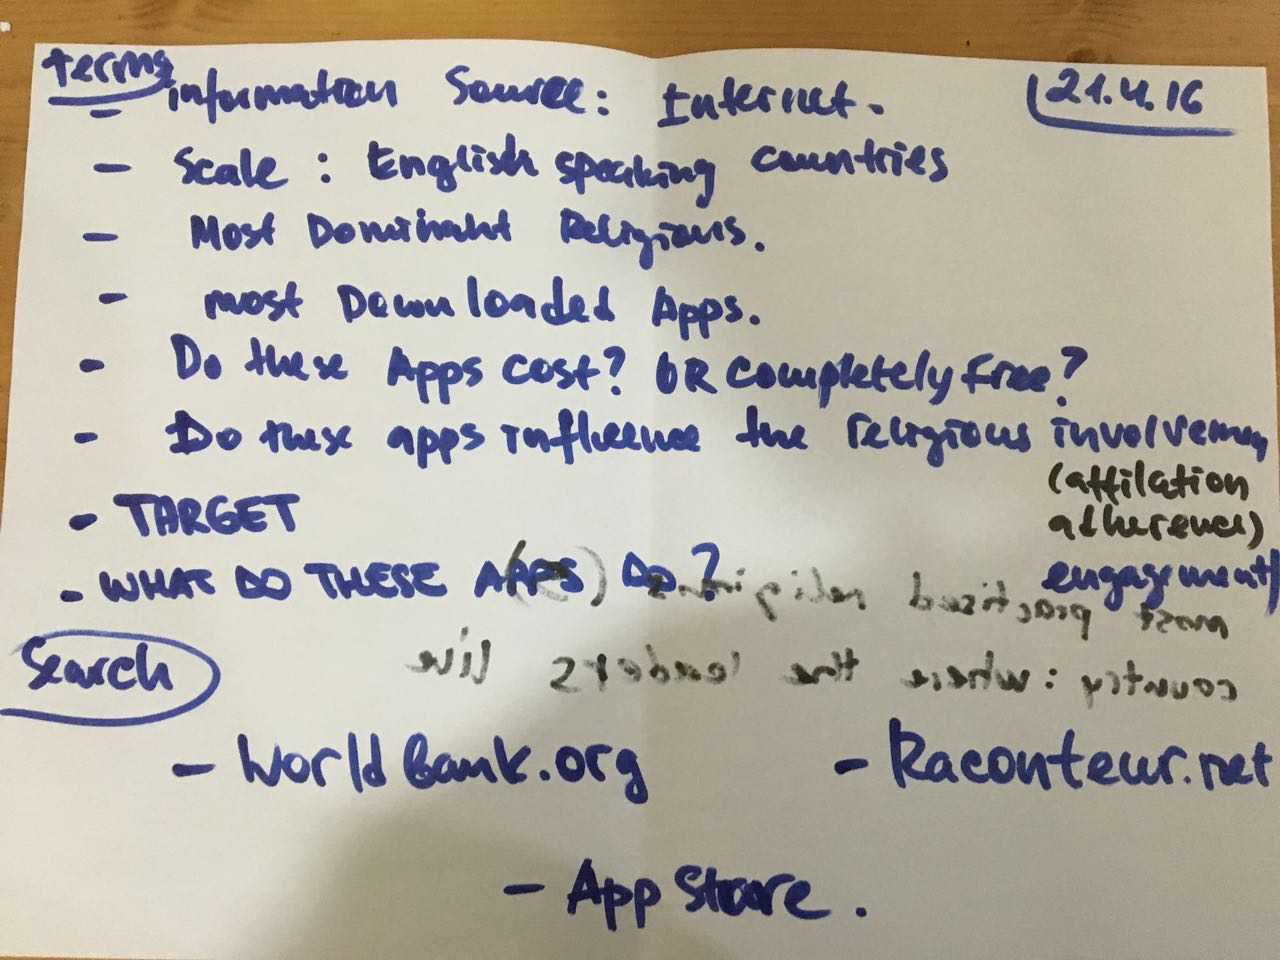 terms
21.4.16
- information Source: Internet.
- Scale: English speaking countries
- Most Dominant Religions.
- most Downloaded Apps.
- Do these Apps cost? OR completely free?
- Do these apps influence the religious involvemen
(affilation
adherence)
engagement/
- TARGET
- WHAT DO THESE APPS DO?
most practised religions
country: where the leaders live
Search
- World Bank.org
- Raconteur.net
- App Store.